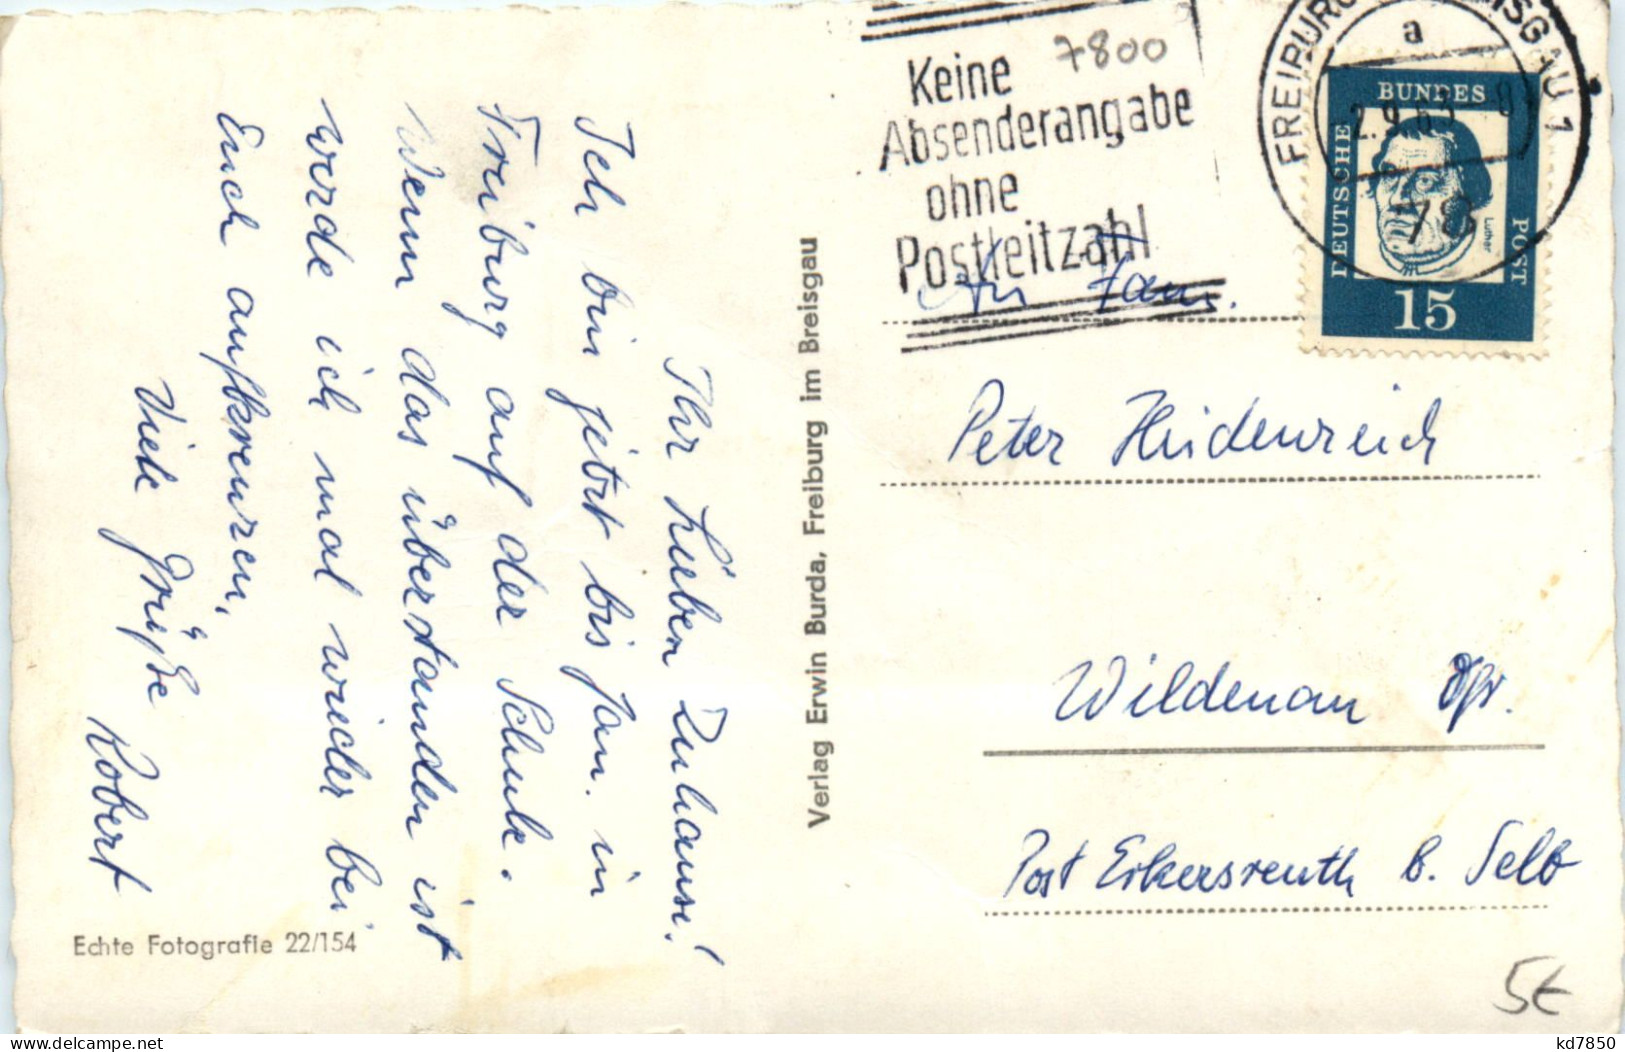 Ihr Lieben Zuhause!
Ich bin jetzt bis Jan. in
Freiburg auf der Schule.
Wenn das überstanden ist
werde ich mal wieder bei
Euch aufkreuzen.
Viele Grüße
Robert
Echte Fotografie 22/154
Verlag Erwin Burda, Freiburg im Breisgau
7800
Keine
Absenderangabe
ohne
Postleitzahl
FREIBURG BREISGAU 1
a
2.9.63
78
DEUTSCHE
BUNDES
POST
Luther
15
An Fam.
Peter Heidenreich
Wildenau Ofr.
Post Erkersreuth b. Selb
5€
kd7850